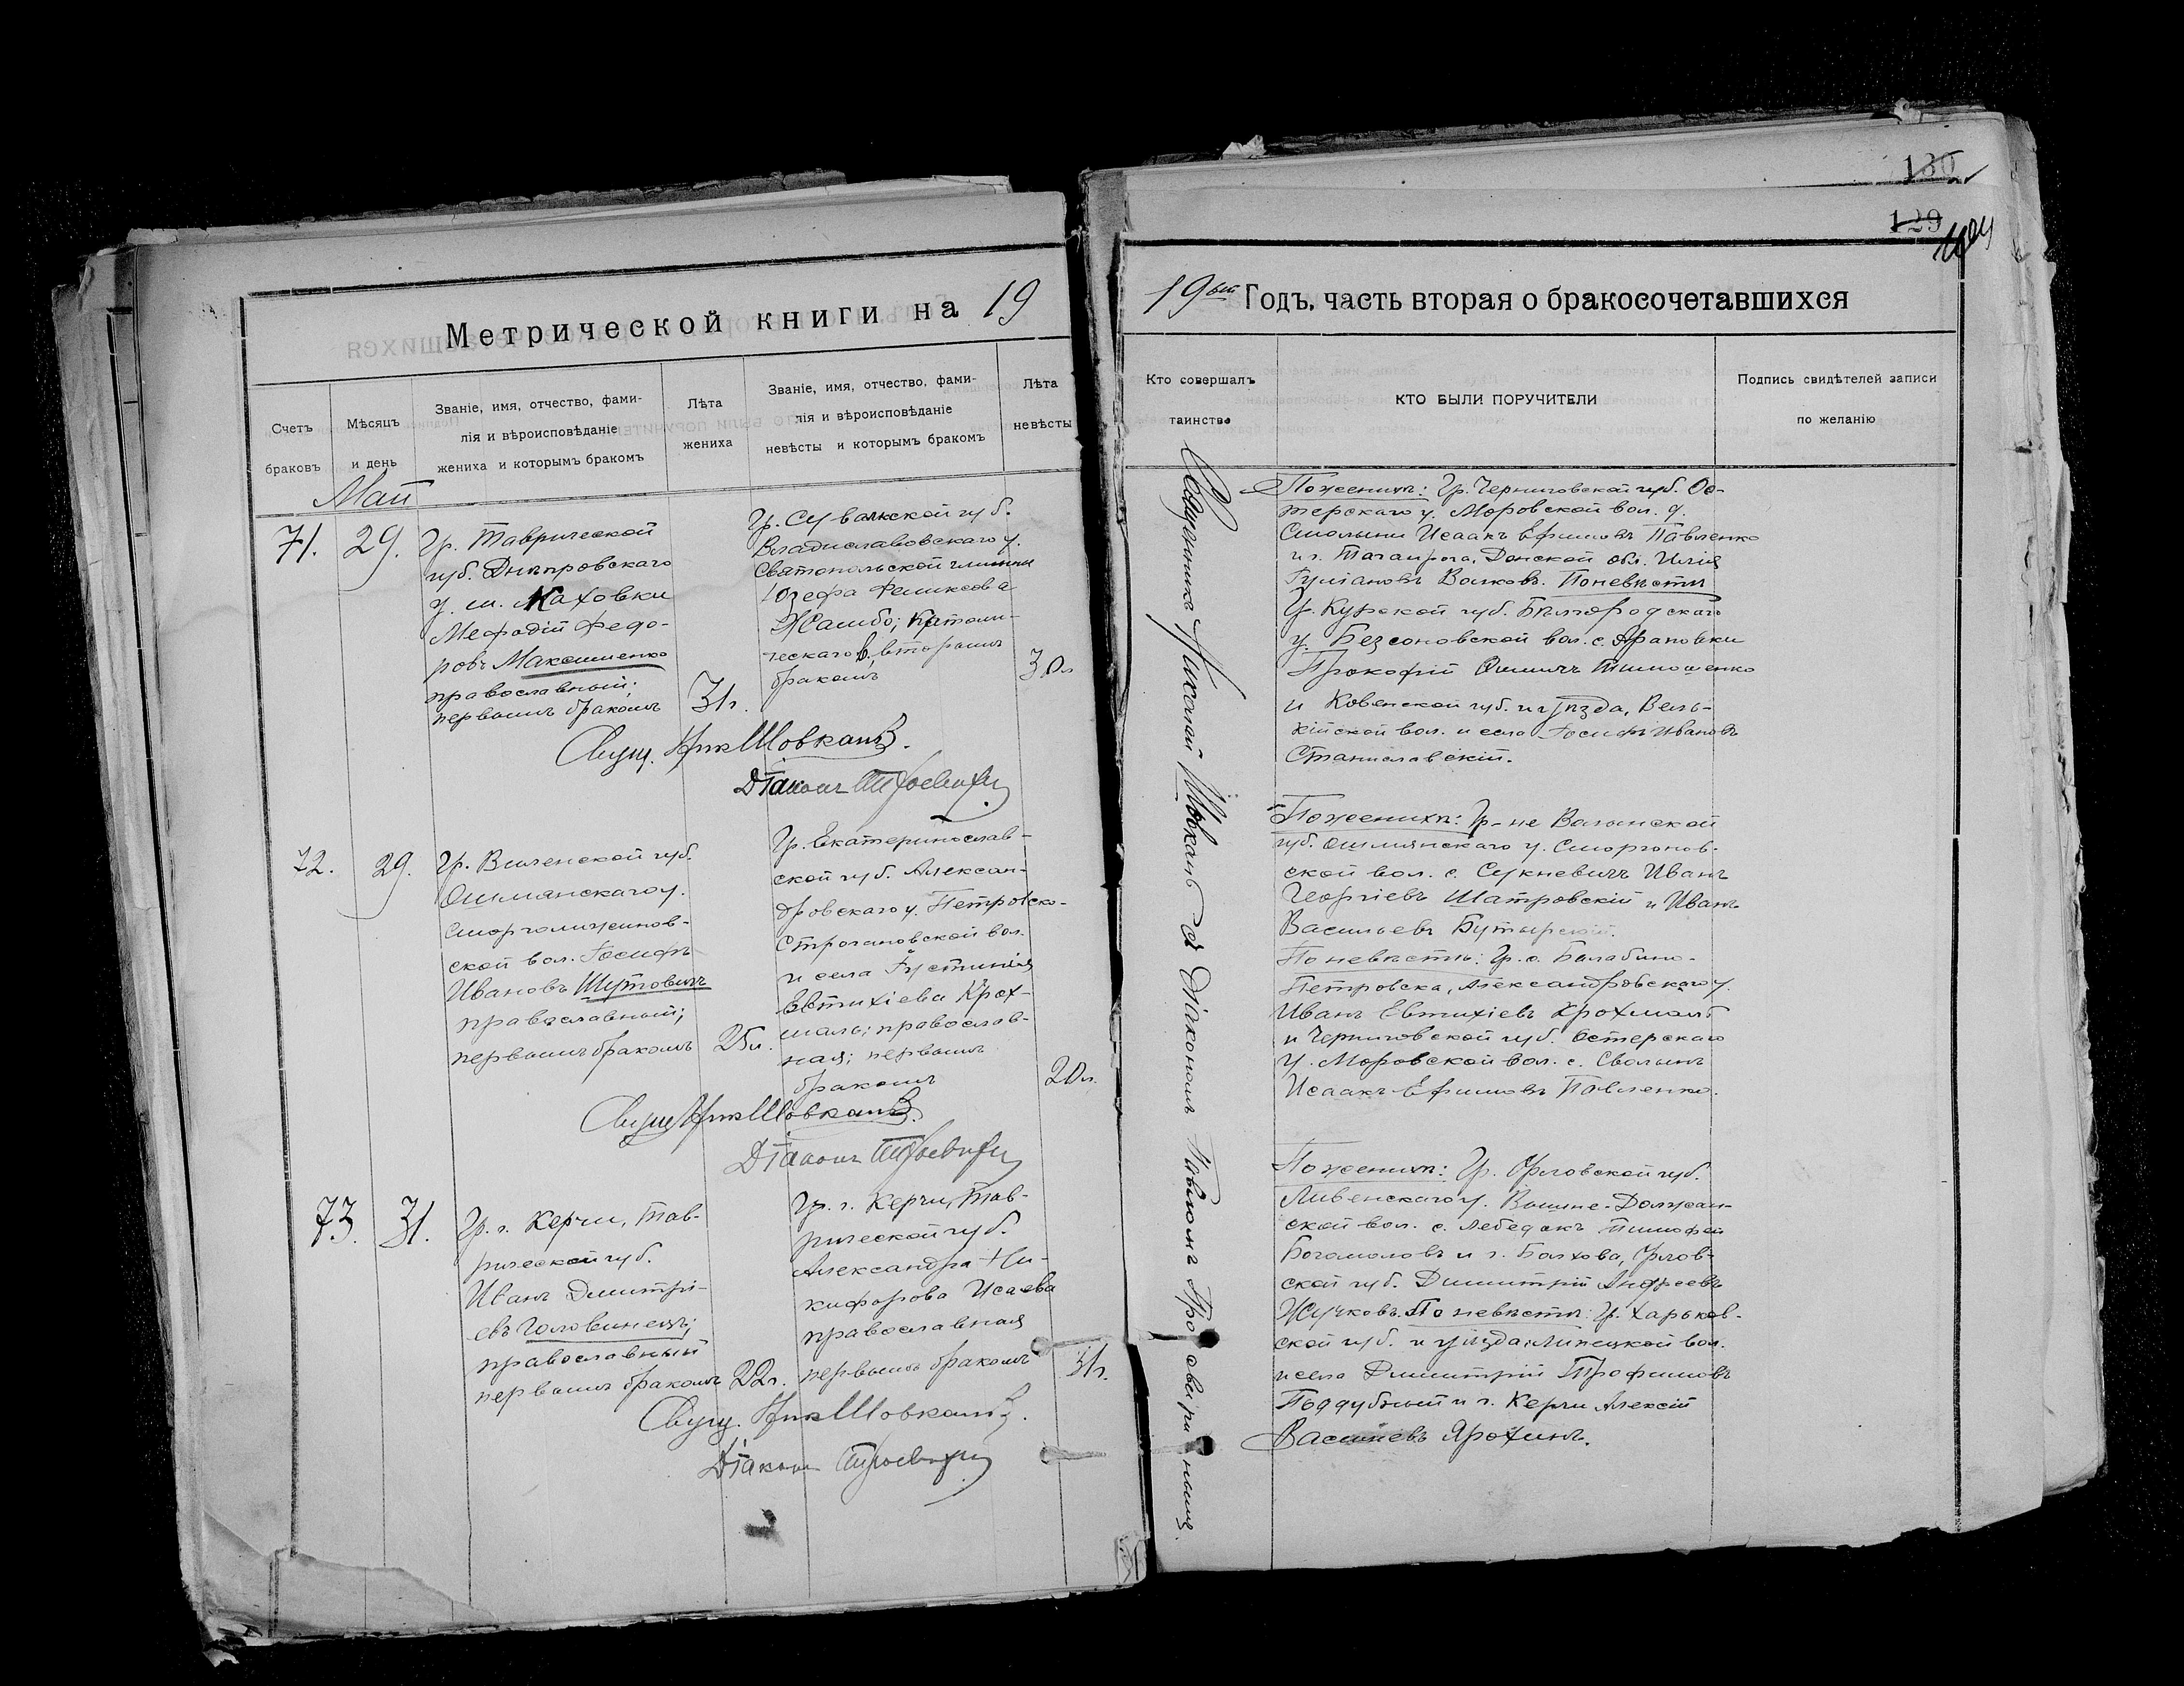 130
129
Метрической книги на 19
19ый Годъ, часть вторая о бракосочетавшихся
Счетъ
браковъ
Мѣсяцъ
и день
Званіе, имя, отчество, фами-
лія и вѣроисповѣданіе
жениха и которымъ бракомъ
Лѣта
жениха
Званіе, имя, отчество, фами-
лія и вѣроисповѣданіе
невѣсты и которымъ бракомъ
Лѣта
невѣсты
Кто совершалъ
таинство
КТО БЫЛИ ПОРУЧИТЕЛИ
Подпись свидѣтелей записи
по желанію
Май
71.
29.
Гр. Таврической
губ. Днѣпровскаго
у. м. Каховки
Мефодій Федо-
ровъ Максименко
православный;
первымъ бракомъ
31г.
Гр. Сувалкской губ.
Владиславовскаго у.
Святопольской гмины
Юзефа Феликсова
Жамбо; Католи-
ческаго в. вторымъ
бракомъ
30л
Свящ. Ник Шовкань.
Діаконъ
72.
29.
Гр. Виленской губ.
Ошмянскаго у.
ской вол. Іосифъ
Ивановъ Шутовичъ
православный;
первымъ бракомъ
25л.
Гр. Екатеринослав-
ской губ. Алексан-
дровскаго у. Петровско-
Строгановской вол.
и села Іустинія
Евтихіева Крох-
маль; православ-
ная; первымъ
бракомъ
20л.
Свящ Ник Шовкань.
Діаконъ
73.
31.
Гр. г. Керчи, Тав-
рической губ.
Иванъ Димитрі-
евъ Головинецъ;
православный
первымъ бракомъ
22г.
Гр. г. Керчи, Тав-
рической губ.
Александра Ни-
кифорова Исаева
православная
первымъ бракомъ
31г.
Свящ. Ник Шовкань.
Діаконъ
Священникъ Николай Шовкань съ Діакономъ Павломъ
По женихѣ: Гр. Черниговской губ. Ос-
терскаго у. Моровской вол. д.
Смолыни Исаакъ Ефимовъ Павленко
и г. Таганрога, Донской обл. Илія
Іуліановъ Волковъ. По невѣстѣ
Гр. Курской губ. Бѣлгородскаго
у. Безсоновской вол. с. Араповки
Прокофій Тимошенко
и Ковенской губ. и уѣзда, Вель-
кійской вол. и села Іосифъ Ивановъ
Станиславскій.
По женихѣ: Гр-не Волынской
губ. Ошмянскаго у. Сморгонов-
ской вол. с. Сукневичъ Иванъ
Георгіевъ Шатровскій и Иванъ
Васильевъ Бутырскій.
По невѣстѣ: Гр. с. Балабино-
Петровска, Александровскаго у.
Иванъ Евтихіевъ Крохмаль
и Черниговской губ. Остерскаго
у. Моровской вол. с. Смолынь
Исаакъ Ефимовъ Павленко.
По женихѣ: Гр. Орловской губ.
Ливенскаго у. Вышне-Должан-
ской вол. с. Лебедокъ Тимофей
Богомоловъ и г. Болхова, Орлов-
ской губ. Димитрій Андреевъ
Жучковъ. По невѣстѣ: Гр. Харьков-
ской губ. и уѣзда, Липецкой вол.
и села Димитрій Трофимовъ
Поддубный и г. Керчи Алексій
Васильевъ Ярохинъ.